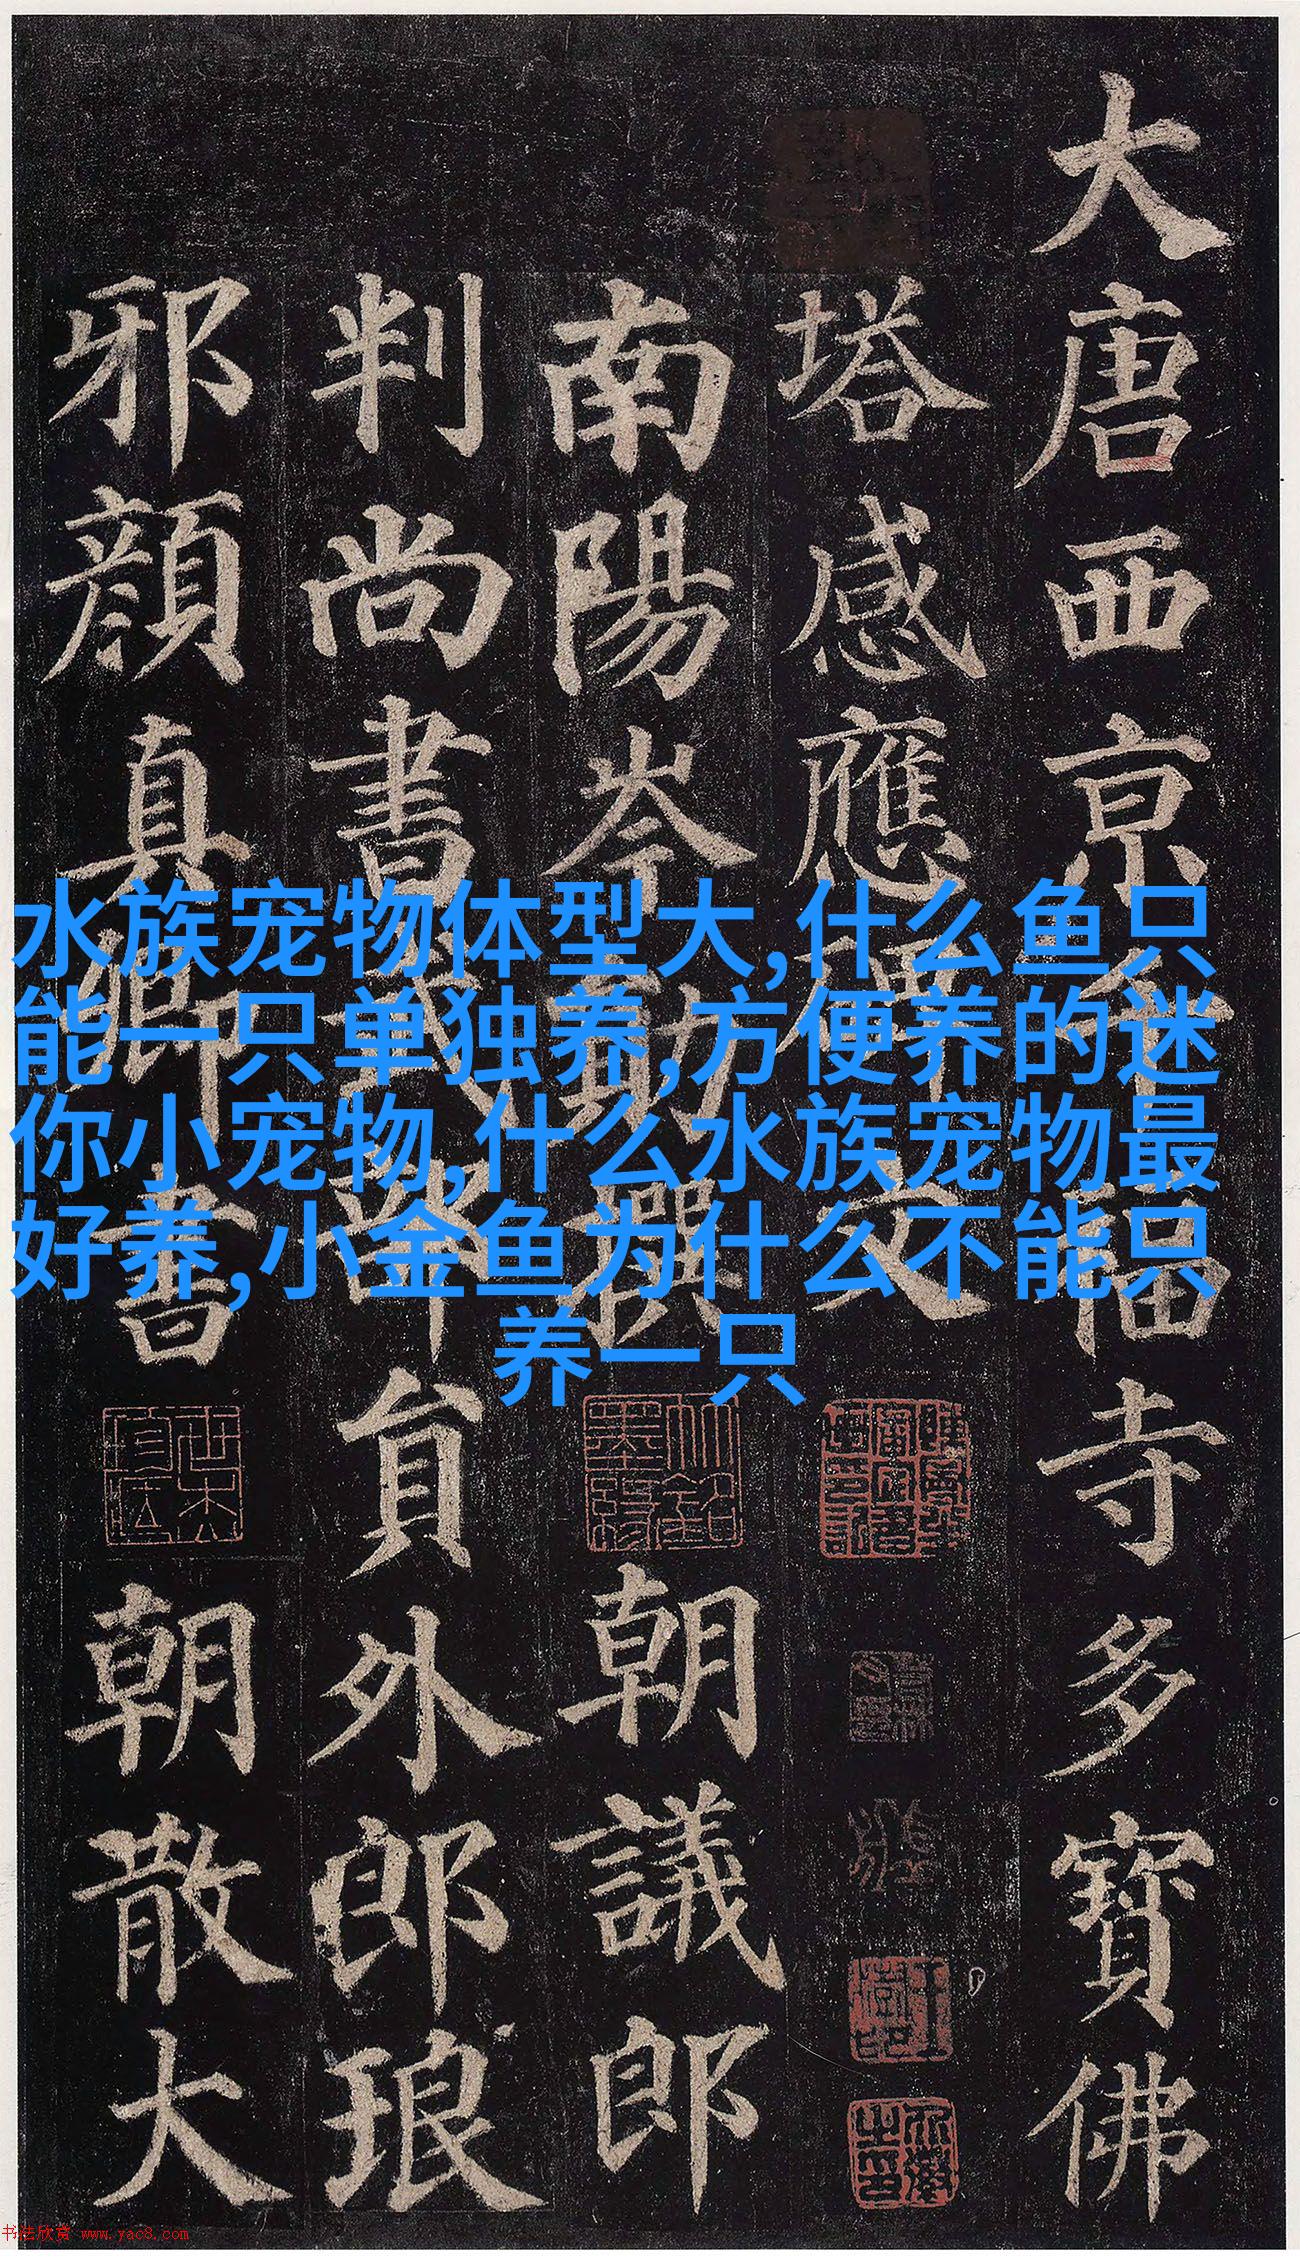 大唐西京千福寺多寶佛
塔感應碑文
南陽岑勛撰 朝議郎
判尚書武部員外郎琅
邪顏真卿書 朝散大
水族宠物体型大,什么鱼只
能一只单独养,方便养的迷
你小宠物,什么水族宠物最
好养,小金鱼为什么不能只
养一只
书法欣赏 www.yac8.com